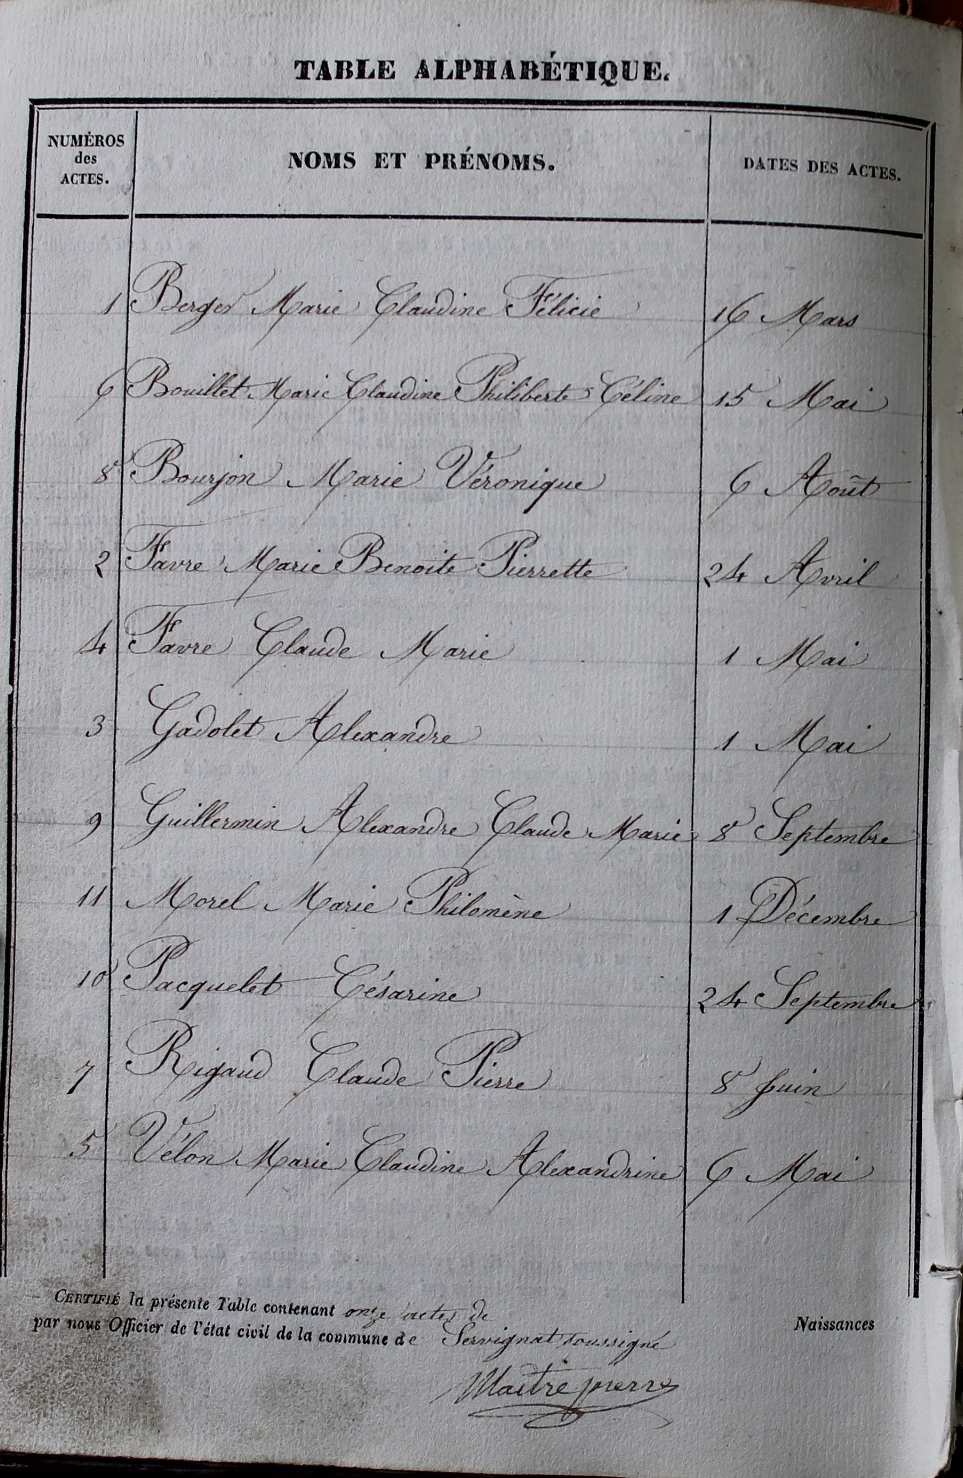 TABLE ALPHABÉTIQUE.
NUMÉROS des ACTES. NOMS ET PRÉNOMS. DATES DES ACTES.
1 Berger Marie Claudine Félicie 16 Mars
6 Bouillet Marie Claudine Philiberte Céline 15 Mai
8 Bourjon Marie Véronique 6 Août
2 Favre Marie Benoite Pierrette 24 Avril
4 Favre Claude Marie 1 Mai
3 Gadolet Alexandre 1 Mai
9 Guillermin Alexandre Claude Marie 8 Septembre
11 Morel Marie Philomène 1 Décembre
10 Pacquelet Césarine 24 Septembre
7 Rigaud Claude Pierre 8 Juin
5 Vélon Marie Claudine Alexandrine 6 Mai
CERTIFIÉ la présente Table contenant onze actes de Naissances
par nous Officier de l'état civil de la commune de Servignat soussigné
Maitre pierre